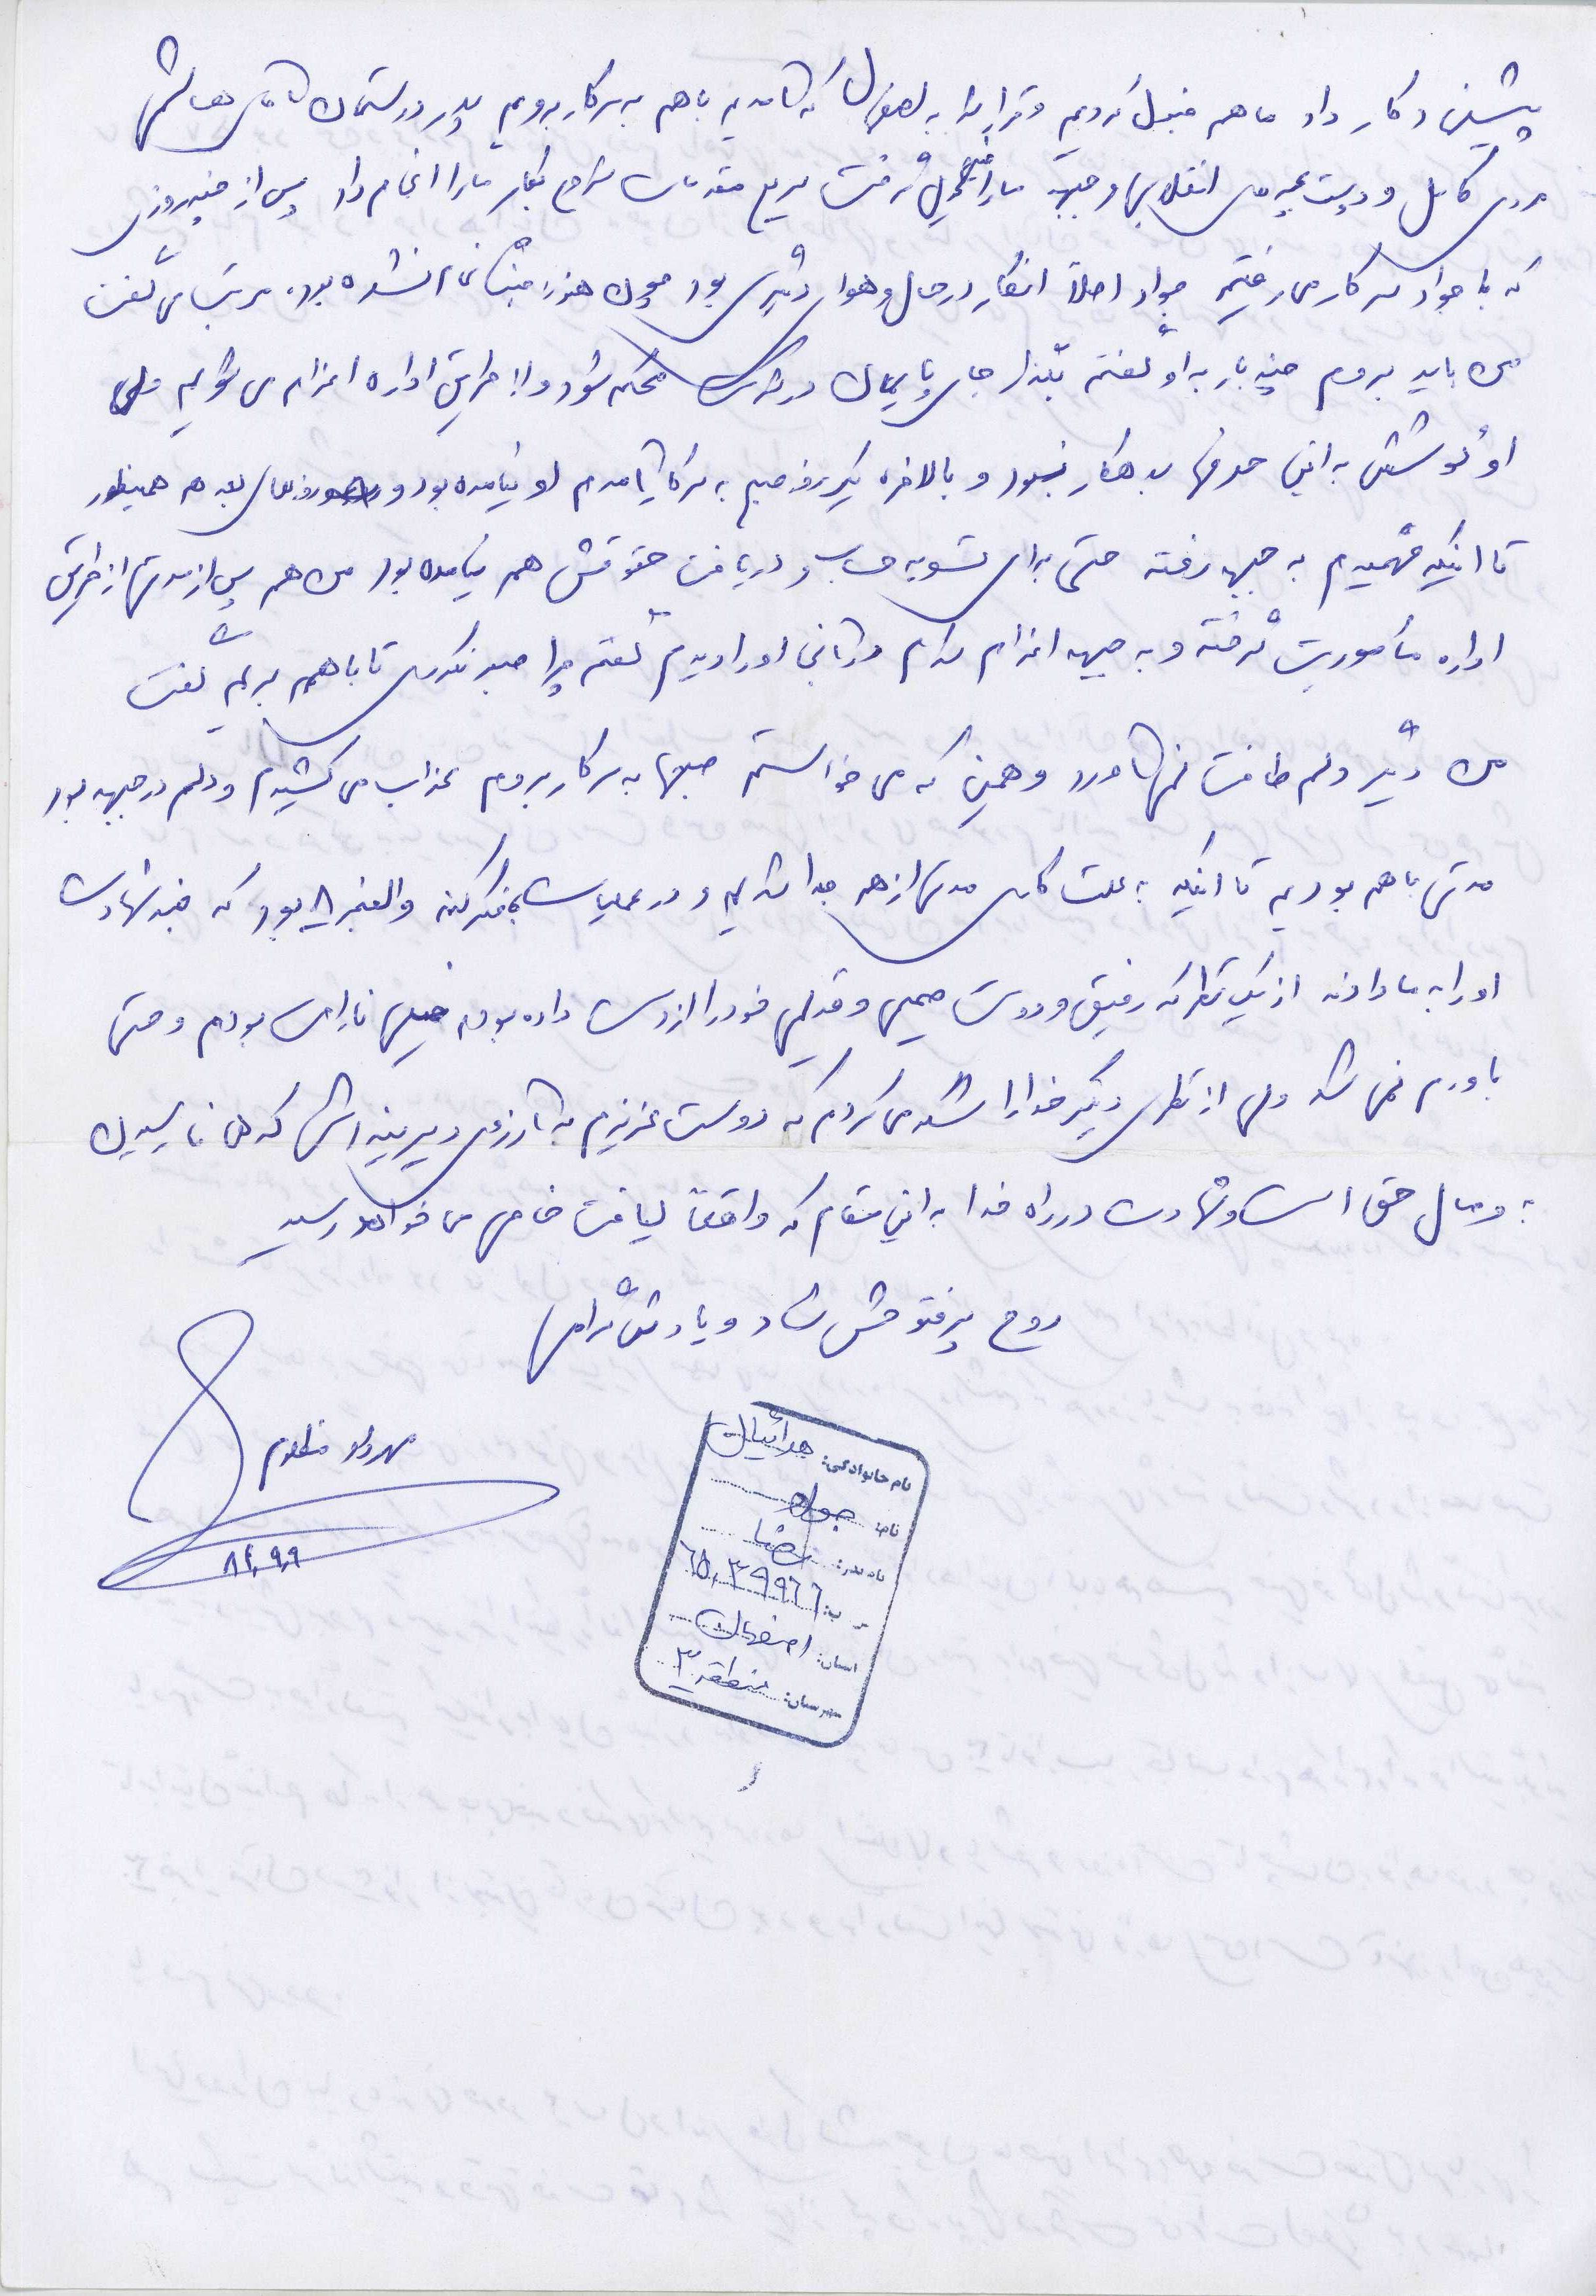 پیشنهاد کار داد ما هم قبول کردیم و قرار شد به اصفهان که آمدیم با هم به سرکار برویم پدر دوستمان آقای هاشمی
مردی کامل و دوست بچه های انقلابی و جبهه ما را خیلی تحویل گرفت سریع مقدمات شروع بکار ما را انجام داد پس از چند روزی
که با جواد سرکار می رفتیم جواد اصلاً انگار در حال و هوای دیگری بود چون هنوز جنگ تمام نشده بود. مرتب می گفت
من باید بروم چند بار به او گفتم بگذار جای پایمان در شرکت محکم شود و از طریق اداره اعزام می شویم ولی
او گوشش به این حرفها بدهکار نبود و بالاخره یک روز صبح به سرکار آمدم او نیامده بود و روزهای بعد هم همینطور
تا اینکه فهمیدم به جبهه رفته حتی برای تسویه حساب و دریافت حقوقش هم نیامده بود من هم پس از مدتی از طریق
اداره مأموریت گرفته و به جبهه اعزام شدم در آنجا او را دیدم گفتم چرا صبر نکردی تا با هم بریم گفت
من دیگر دلم طاقت نمی آورد و همین که می خواستم صبحها به سرکار بروم عذاب می کشیدم و دلم در جبهه بود
مدتی با هم بودیم تا اینکه به علت کاری مدتی از هم جدا شدیم و در عملیات فکر کنم والفجر ۸ بود که خبر شهادت
او را به ما دادند از یک نظر که رفیق و دوست صمیمی و قدیمی خود را از دست داده بودم خیلی ناراحت بودم و حتی
باورم نمی شد ولی از نظری دیگر خدا را شکر می کردم که دوست عزیزم به آرزوی دیرینه اش که همانا رسیدن
به وصال حق است و شهادت در راه خدا به این مقام که واقعاً لیاقت خاصی می خواهد رسید
روح پرفتوحش شاد و یادش گرامی
مهرداد مظلوم
۸۴،۹،۹
نام خانوادگی: هدائیان
نام: جواد
نام پدر: رضا
۶۵،۳۹۹۶۶
استان: اصفهان
شهرستان: منطقه ۳